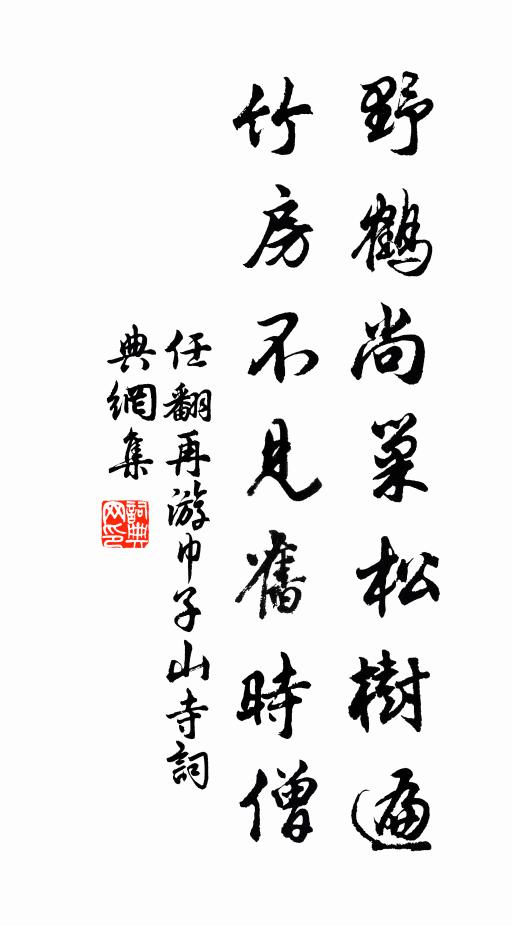 野鶴尚巢松樹遍
竹房不見舊時僧
任翻再游巾子山寺詞
典網集
詞典網印